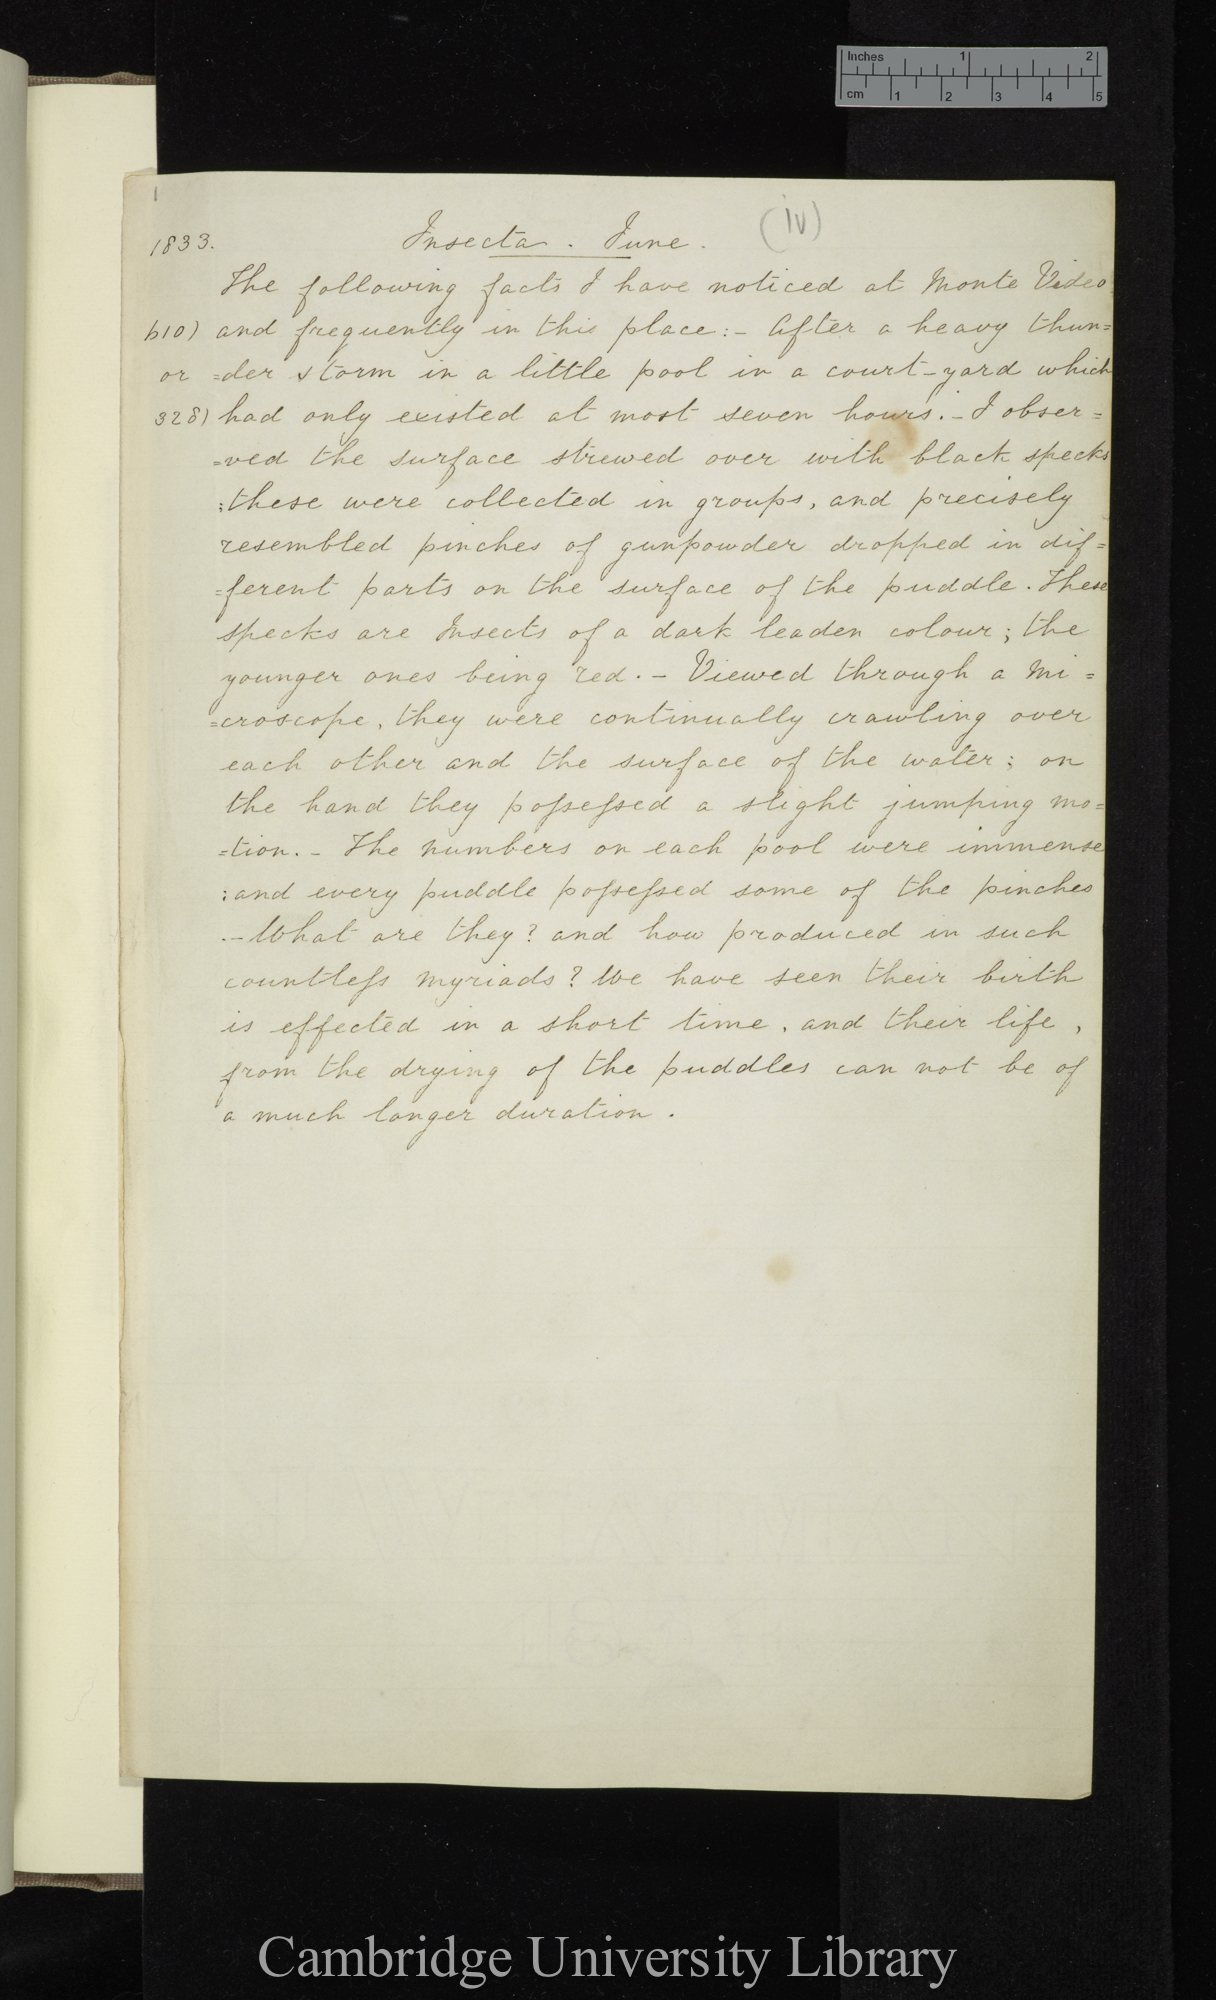 Inches 1 2
cm 1 2 3 4 5
1
1833. Insecta. June. (iv)
The following facts I have noticed at Monte Video
610) and frequently in this place:- After a heavy thun=
or =der storm in a little pool in a court-yard which
328) had only existed at most seven hours.- I obser=
=ved the surface strewed over with black specks
;these were collected in groups, and precisely
resembled pinches of gunpowder dropped in dif=
=ferent parts on the surface of the puddle. These
specks are Insects of a dark leaden colour; the
younger ones being red.- Viewed through a Mi=
=croscope, they were continually crawling over
each other and the surface of the water; on
the hand they poſseſsed a slight jumping mo=
=tion.- The numbers on each pool were immense
:and every puddle poſseſsed some of the pinches
.-What are they? and how produced in such
countleſs myriads? We have seen their birth
is effected in a short time, and their life,
from the drying of the puddles can not be of
a much longer duration.
Cambridge University Library